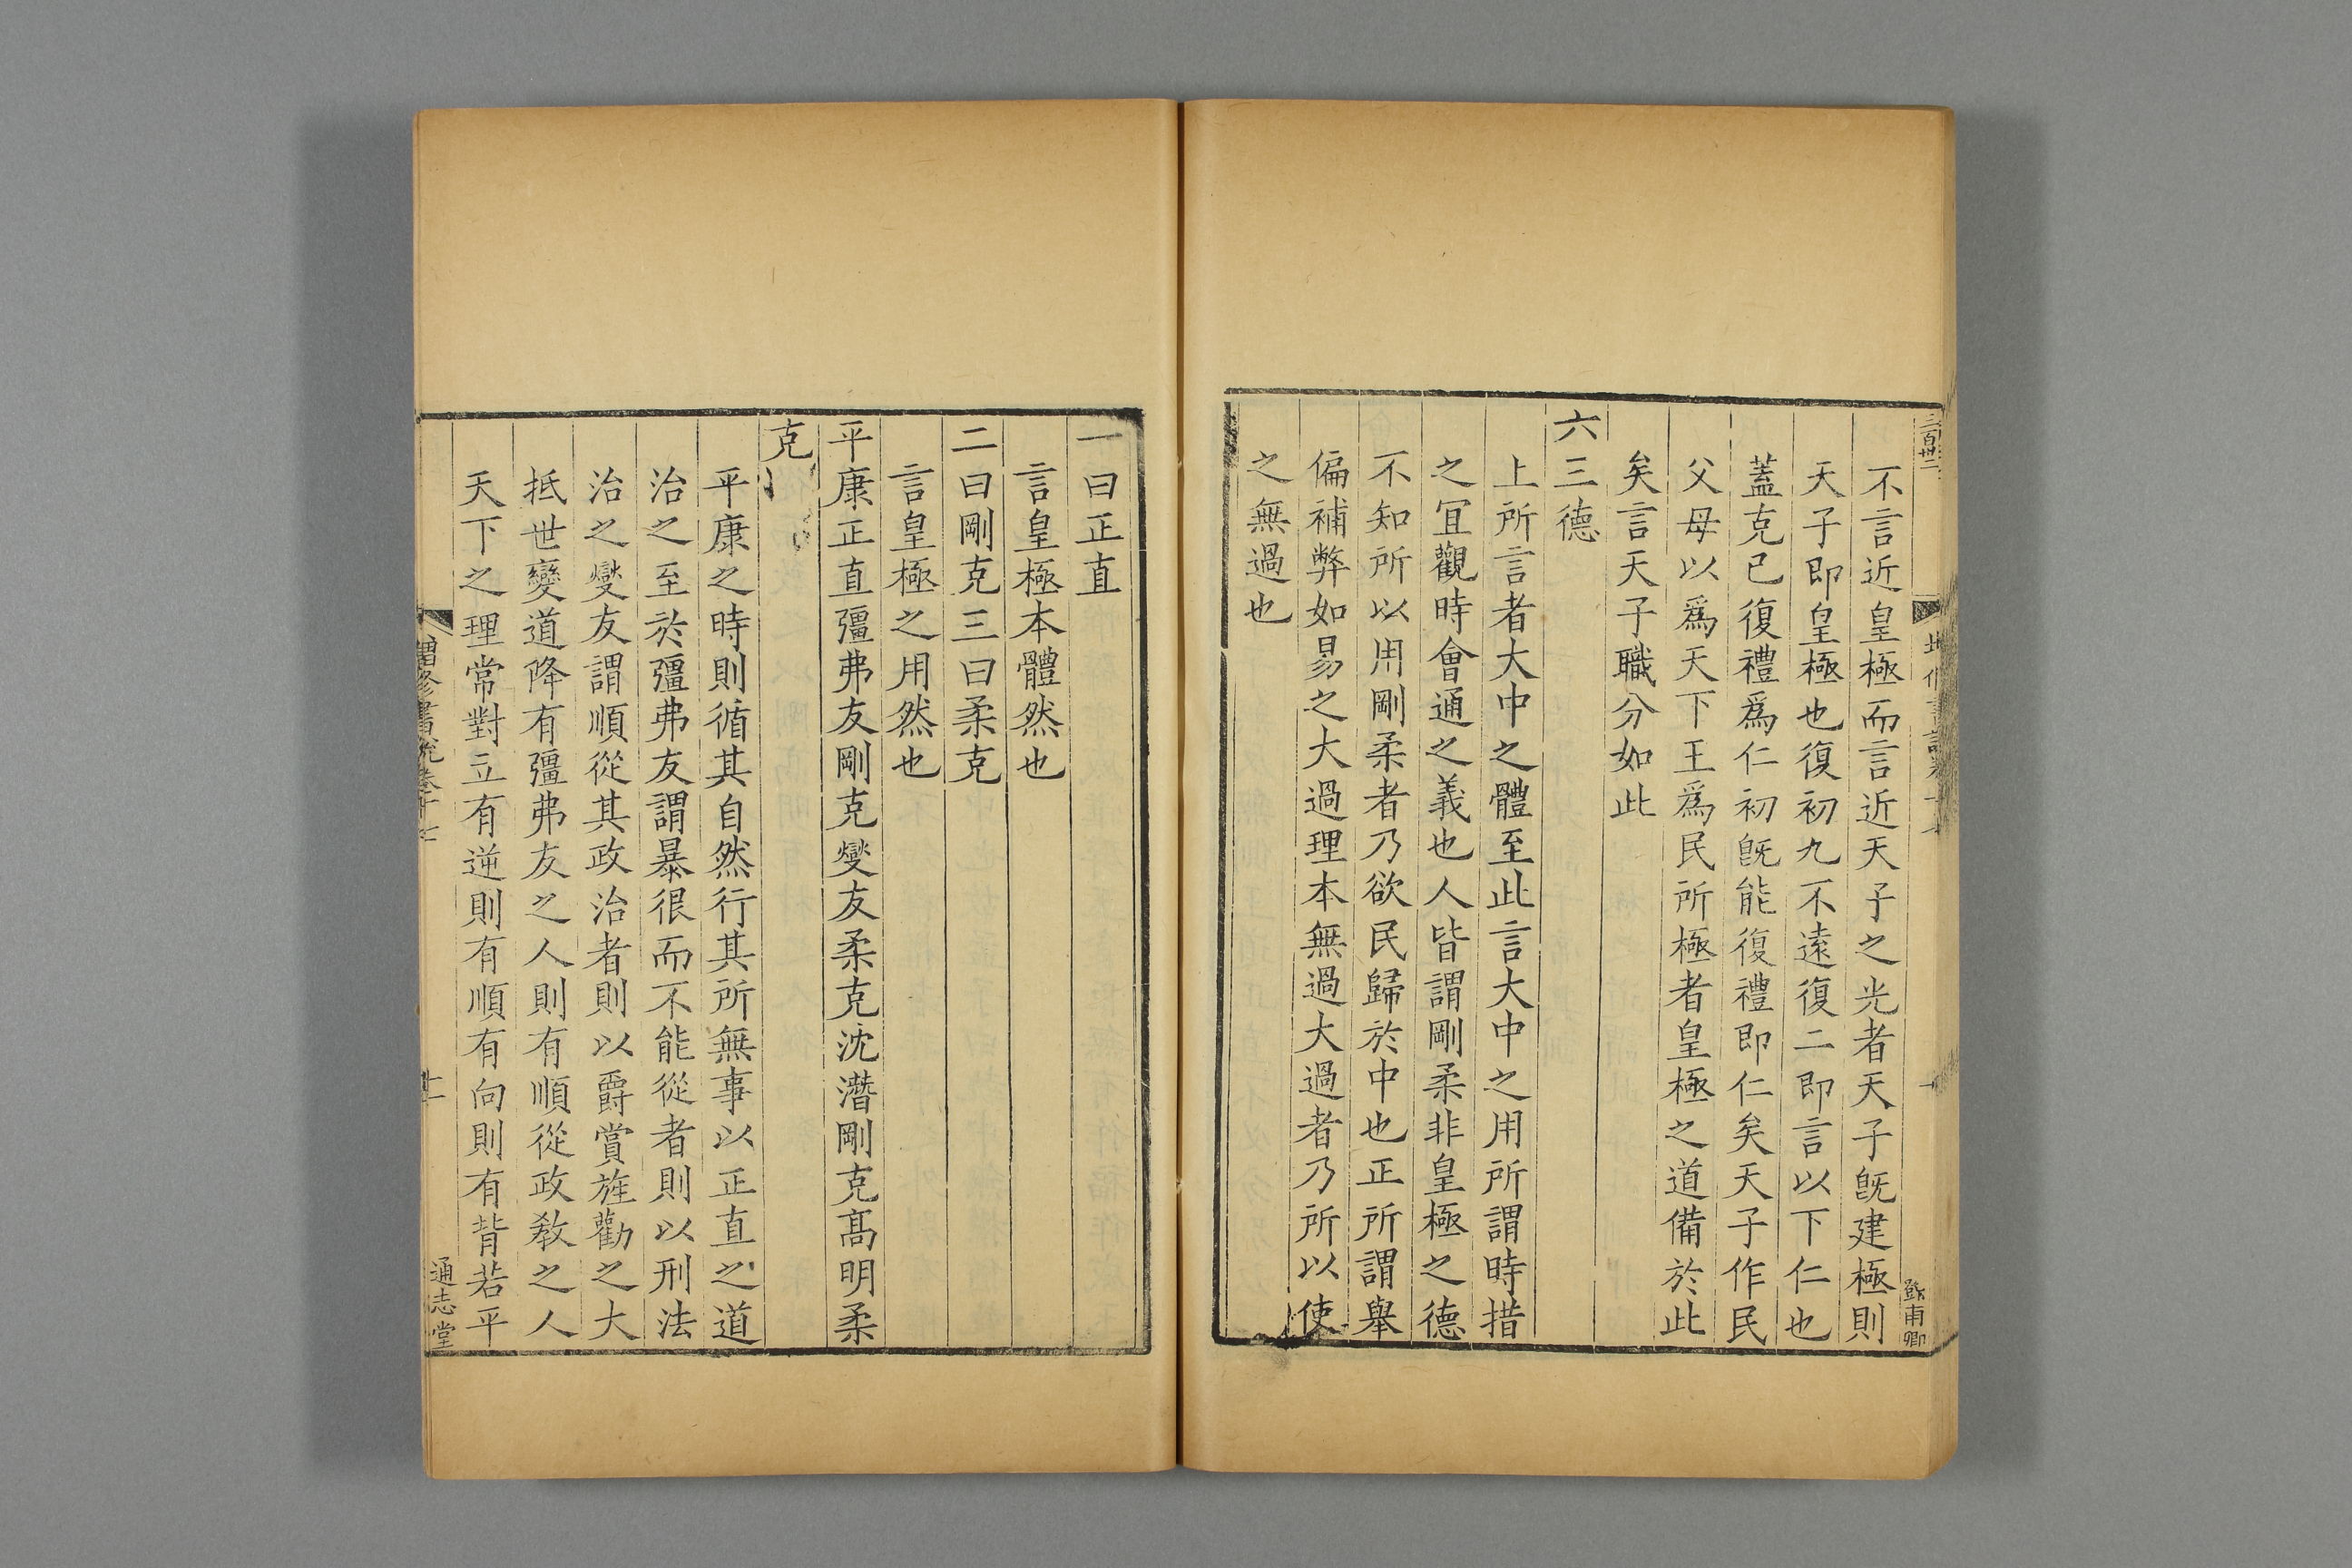 三百卅二
鄧甫卿
不言近皇極而言近天子之光者天子旣建極則
天子即皇極也復初九不遠復二即言以下仁也
蓋克已復禮爲仁初旣能復禮即仁矣天子作民
父母以爲天下王爲民所極者皇極之道備於此
矣言天子職分如此
六三德
上所言者大中之體至此言大中之用所謂時措
之冝觀時會通之義也人皆謂剛柔非皇極之德
不知所以用剛柔者乃欲民歸於中也正所謂舉
偏補弊如易之大過理本無過大過者乃所以使
之無過也
一曰正直
言皇極本體然也
二曰剛克三曰柔克
言皇極之用然也
平康正直彊弗友剛克燮友柔克沈潛剛克髙明柔
克
平康之時則循其自然行其所無事以正直之道
治之至於彊弗友謂暴很而不能從者則以刑法
治之燮友謂順從其政治者則以爵賞旌勸之大
抵世變道降有彊弗友之人則有順從政教之人
天下之理常對立有逆則有順有向則有背若平
增修書說卷十七
十一
通志堂